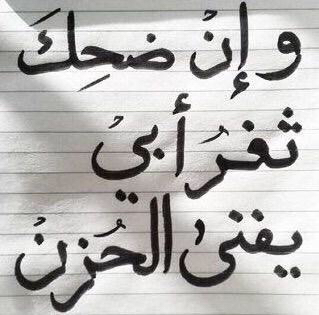 وإنْ ضحِكَ
ثغرُ أبيْ
يفنىْ الحُزنْ